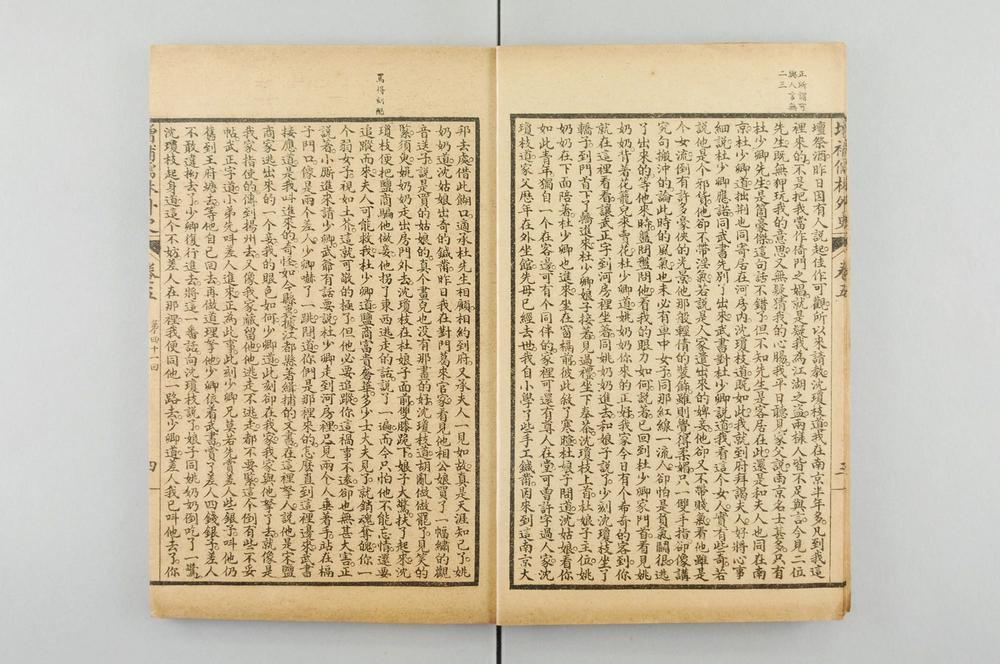 正所謂可
與人言無
二三
增補儒林外史
卷五
三
壇祭酒昨日因有人說起佳作可觀所以來請教沈瓊枝道我在南京半年多凡到我這
裡來的不是把我當作倚門之娼就是疑我為江湖之盜兩樣人皆不足與言今見二位
先生既無狎玩我的意思又無疑猜我的心腸我平日聽見家父說南京名士甚多只有
杜少卿先生是箇豪傑這句話不錯了但不知先生是客居在此還是和夫人也同在南
京杜少卿道拙荊也同寄居在河房內沈瓊枝道既如此我就到府拜謁夫人好將心事
細說杜少卿應諾同武書先別了出來武書對杜少卿說道我看這个女人實有些奇若
說他是个邪貨他卻不帶淫氣若說是人家遣出來的婢妾他卻又不帶賤氣看他雖是
个女流倒有許多豪俠的光景他那般輕倩的裝飾雖則覺得柔媚只一雙手指卻像講
究勾搬沖的論此時的風氣也未必有車中女子同那紅線一流人卻怕是負氣鬭狠逃
了出來的等他來時盤問盤問他看我的眼力如何說著已回到杜少卿家門首看見姚
奶奶背著花籠兒來賣花杜少卿道姚奶奶你來的正好我家今日有个希奇的客到你
就在這裡看看讓武正字到河房裡坐著同姚奶奶進去和娘子說了少刻沈瓊枝坐了
轎子到門首下了轎進來杜少卿娘子接著見過禮坐下奉茶沈瓊枝上首杜娘子主位姚
奶奶在下面陪著杜少卿也進來坐在窗槅前彼此敘了寒暄杜娘子問道沈姑娘看你
如此青年獨自一个在客邊可有个同伴的家裡可還有尊人在堂可曾許字過人家沈
瓊枝道家父歷年在外坐館先母已經去世我自小學了些手工鍼黹因來到這南京大
罵得刻酷
邦去處借此餬口適承杜先生相顧相約到府又承夫人一見如故真是天涯知己了姚
奶奶道沈姑娘出奇的鍼黹昨日我在對門葛來官家看見他相公娘買了一幅繡的觀
音送子說是買的姑娘的真个畫兒也沒有那畫的好沈瓊枝道胡亂做做罷了見笑的
緊須臾姚奶奶走出房門外去沈瓊枝在杜娘子面前雙膝跪下娘子大驚扶了起來沈
瓊枝便把鹽商騙他做妾他拐了東西逃走的話說了一遍而今只怕他不能忘情還要
追蹤而來夫人可能救我杜少卿道鹽商富貴奢華多少士大夫見了就銷魂奪魄你一
个弱女子視如土芥這就可敬的極了但他必要追蹤你這禍事不遠卻也無甚大害正
說著小廝進來請少卿武爺有話要說杜少卿走到河房裡只見兩个人垂著手站在槅
子門口像是兩个差人少卿嚇了一跳問道你們是那裡來的怎麼直到這裡邊來武書
接應道是我叫進來的奇怪如今縣裡據江都縣緝捕的文書在這裡拏人說他是宋鹽
商家逃出來的一个妾我的眼色如何少卿道此刻卻在我家我家與他拏了去就像是
我家指使的傳到揚州去又像我家藏留他他逃走不逃走都不要緊這个倒有些不妥
帖武正字道小弟先叫差人進來正為此事此刻少卿兄莫若先賞差人些銀子叫他仍
舊到王府塘去等他自己回去再做道理拏他少卿依著武書賞了差人四錢銀子差人
不敢違拗去了少卿復行進去將這一番話向沈瓊枝說了娘子同姚奶奶倒吃了一驚
沈瓊枝起身道這个不妨差人在那裡我便同他一路去少卿道差人我已叫他去了你
增補儒林外史
卷五
第四十一回
四